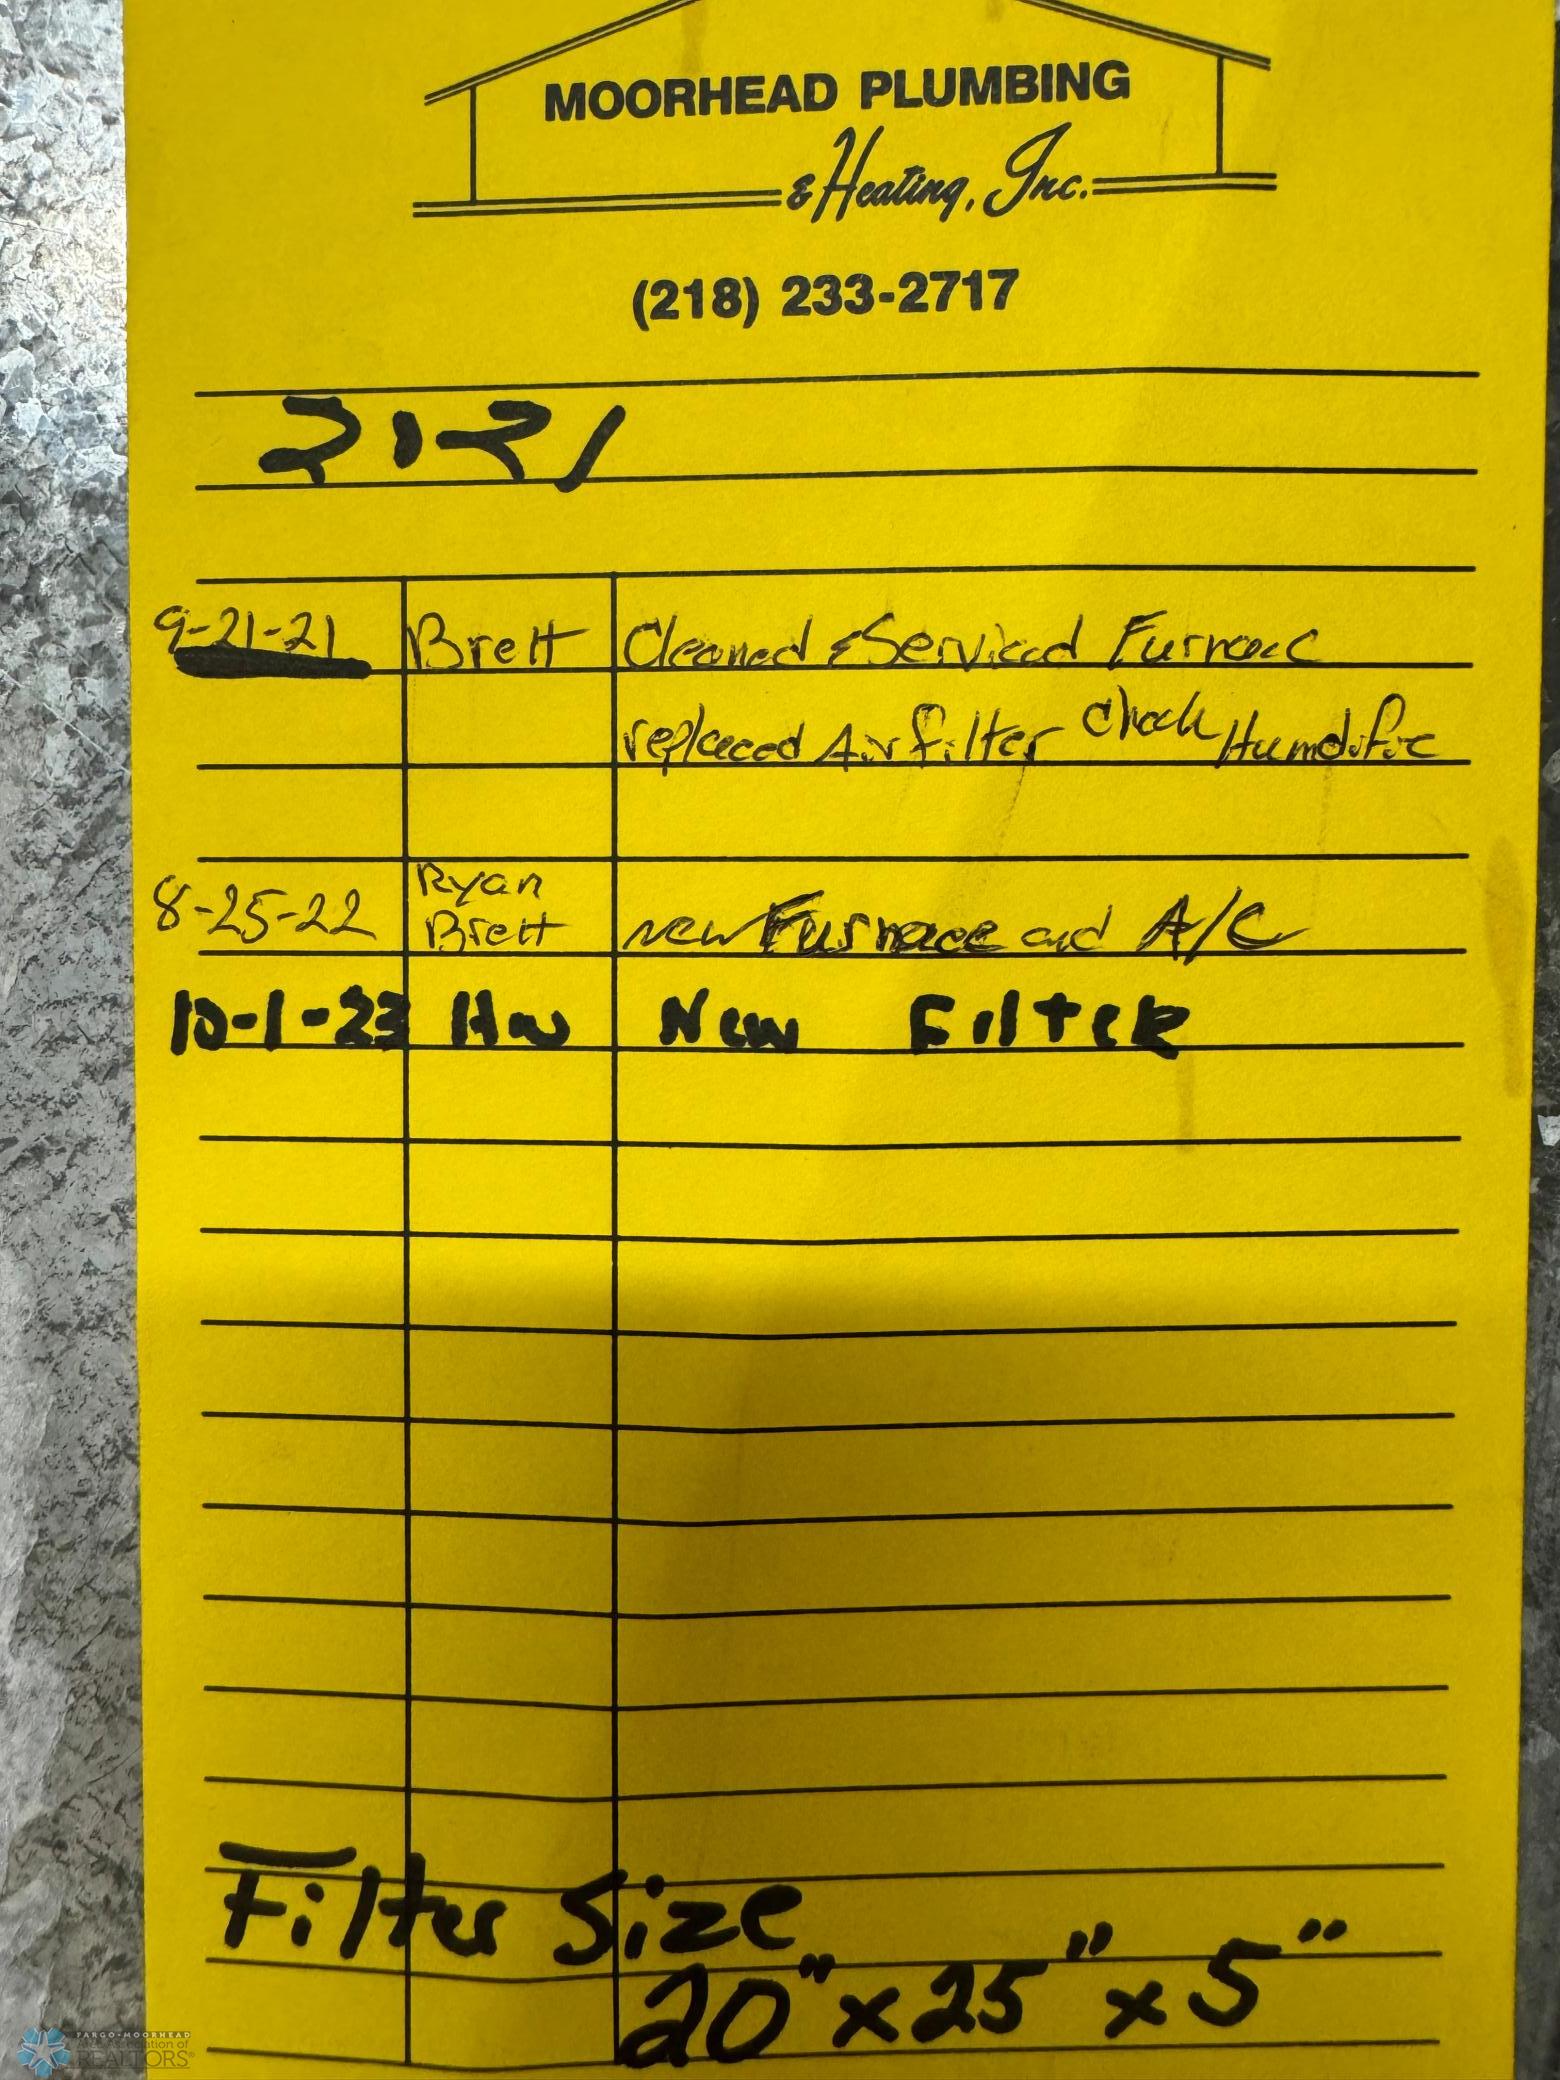 MOORHEAD PLUMBING
& Heating, Inc.
(218) 233-2717
9-21-21 Brett Cleaned & Serviced Furnace
replaced Air filter check Humdifire
8-25-22 Ryan Brett new Furnace and A/C
10-1-23 HW New Filter
Filter Size
20" x 25" x 5"
FARGO-MOORHEAD
Area Association of
REALTORS®